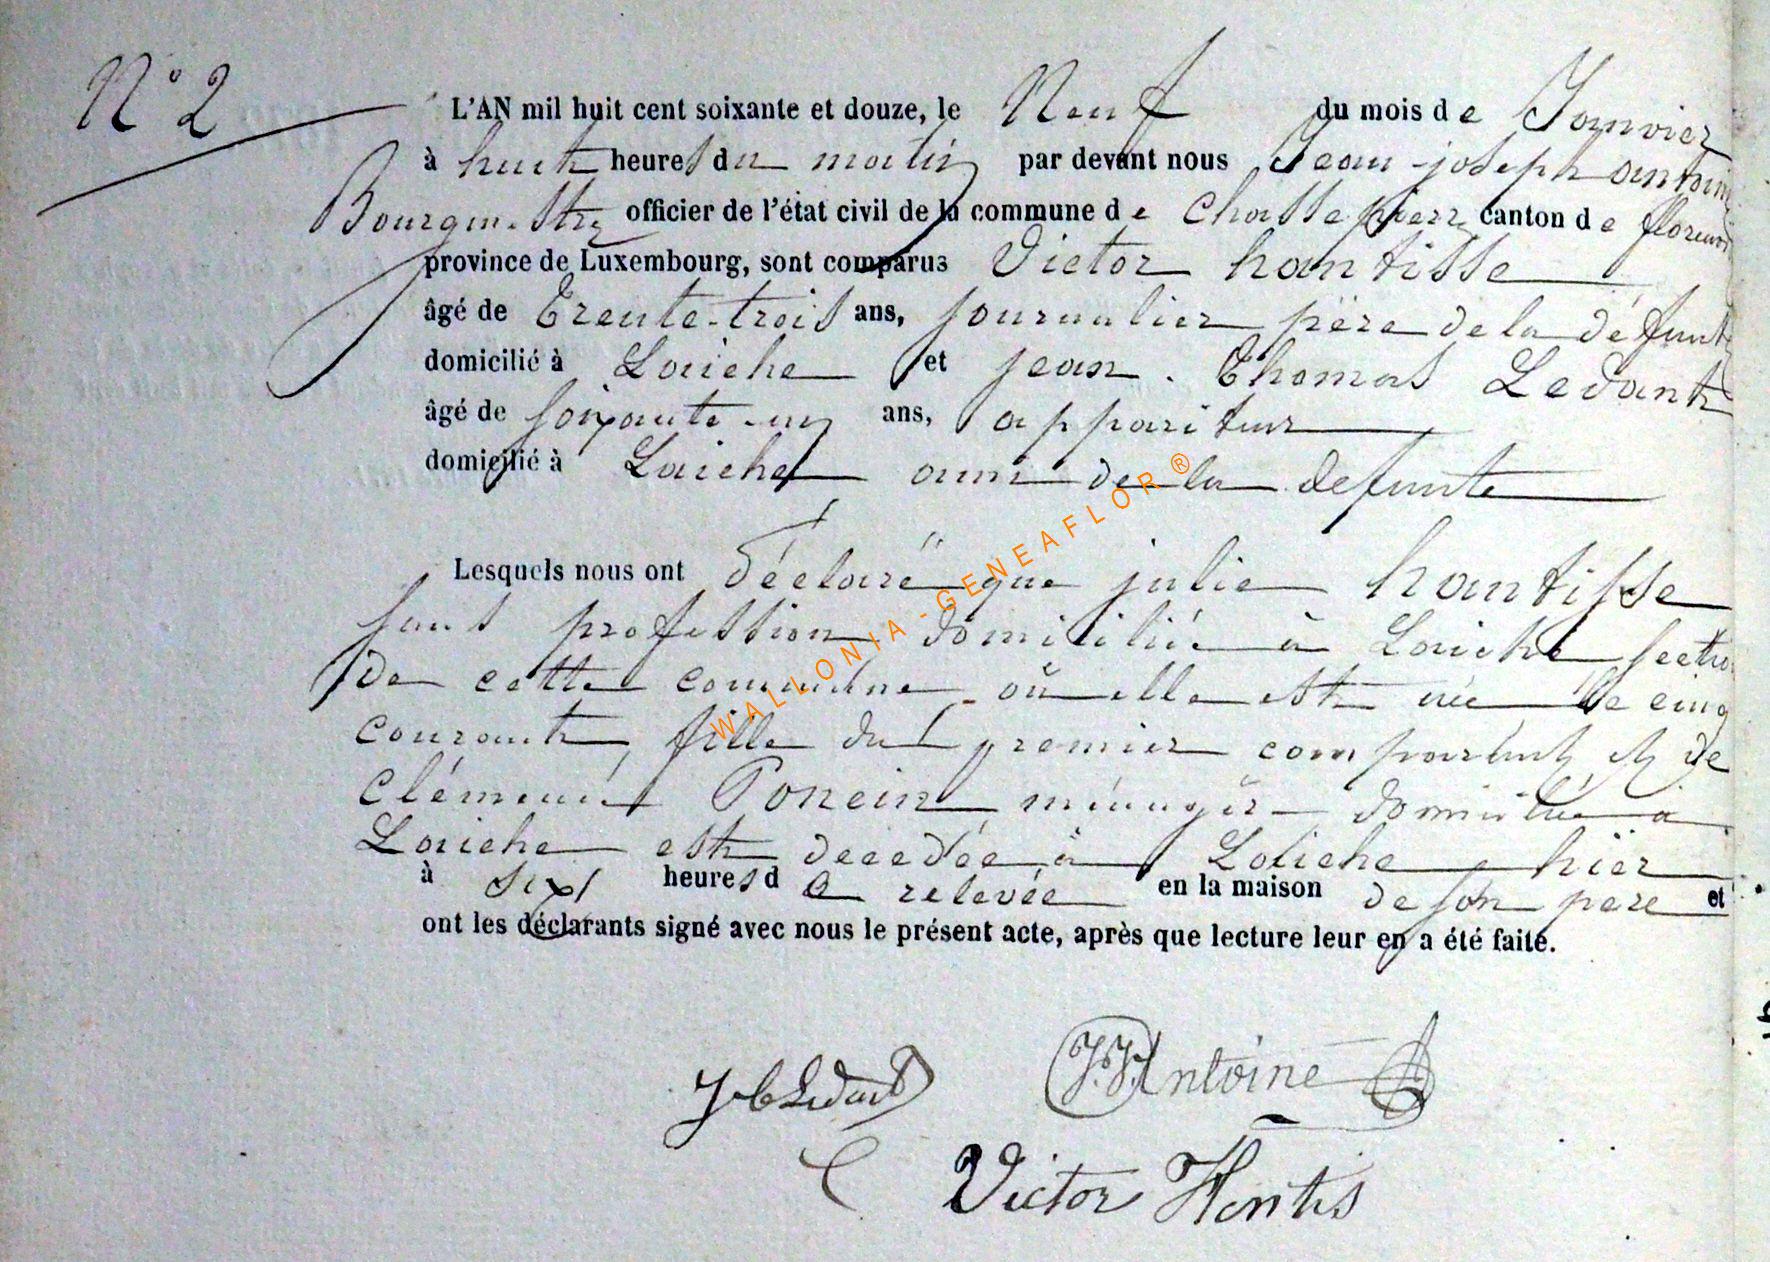 N° 2
L'AN mil huit cent soixante et douze, le Neuf du mois de Janvier
à huit heures du matin par devant nous Jean-joseph antoine
Bourgmestre officier de l'état civil de la commune de Chassepierre canton de florenville
province de Luxembourg, sont comparus Victor hantisse
âgé de Trente-trois ans, journalier père de la défunte
domicilié à Laiche et jean. Thomas Ledant
âgé de soixante-un ans, appariteur
domicilié à Laiche ami de la defunte
Lesquels nous ont déclaré que julie hantisse
sans profession domiciliée à Laiche section
de cette commune où elle est née le cinq
courant, fille du premier comparant et de
Clémence Poncin ménagère domiciliée à
Laiche est decedée à Laiche hier
à six heures de relevée en la maison de son père et
ont les déclarants signé avec nous le présent acte, après que lecture leur en a été faite.
J.J. Antoine
Victor Hentis
WALLONIA-GENEAFLOR ®